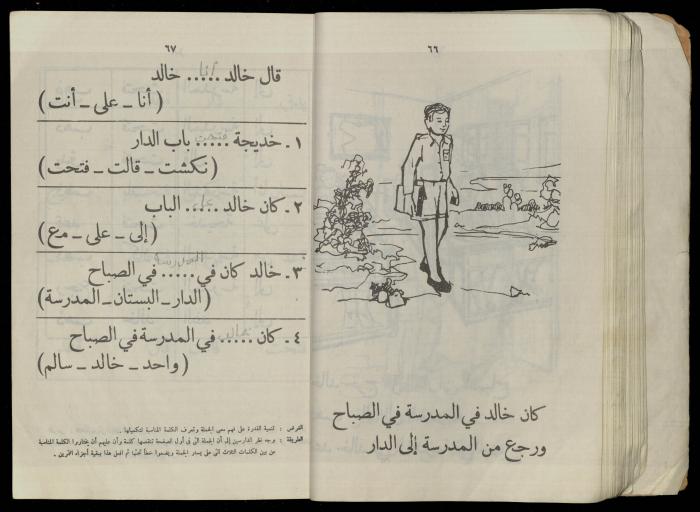 ٦٦
كان خالد في المدرسة في الصباح
ورجع من المدرسة إلى الدار
٦٧
أنا
قال خالد ..... خالد
(أنا ـ على ـ أنت)
فتحت
١ ـ خديجة ..... باب الدار
(نكشت ـ قالت ـ فتحت)
على
٢ ـ كان خالد ..... الباب
(إلى ـ على ـ مع)
المدرسة
٣ ـ خالد كان في ..... في الصباح
(الدار ـ البستان ـ المدرسة)
خالد
٤ ـ كان ..... في المدرسة في الصباح
(واحد ـ خالد ـ سالم)
الغرض : تنمية القدرة على فهم معنى الجملة وتعرف الكلمة المناسبة لتكميلها .
الطريقة : يوجه نظر الدارسين إلى أن الجملة التي في أول الصفحة تنقصها كلمة وأن عليهم أن يختاروا الكلمة المناسبة
من بين الكلمات الثلاث التي على يسار الجملة ويضعوا خطاً تحتها ثم افعل هذا ببقية أجزاء التمرين .